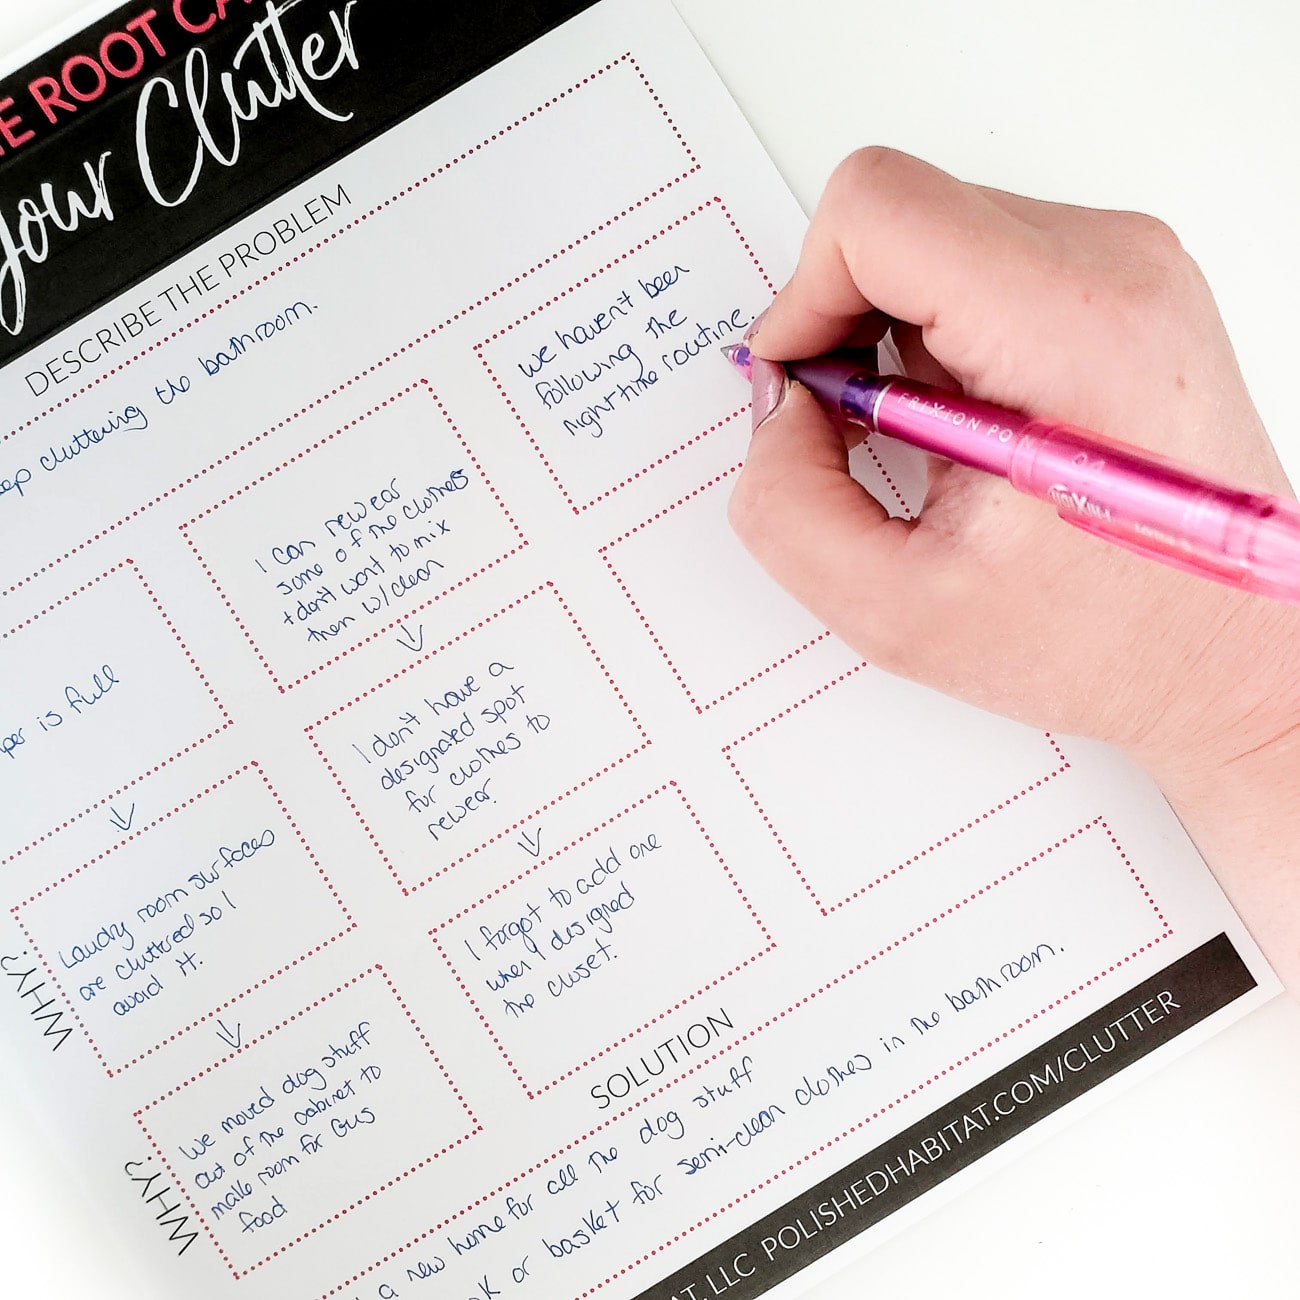 E ROOT CA
your Clutter
DESCRIBE THE PROBLEM
eep cluttering the bathroom.
per is full
Laundry room surfaces
are cluttered so I
avoid it.
We moved dog stuff
out of the cabinet to
make room for Gus
food
I can rewear
some of the clothes
+ don't want to mix
them w/clean
I don't have a
designated spot
for clothes to
rewear.
I forgot to add one
when I designed
the closet.
We haven't been
following the
nighttime routine.
WHY?
WHY?
SOLUTION
a new home for all the dog stuff
or basket for semi-clean clothes in the bathroom.
AT, LLC POLISHEDHABITAT.COM/CLUTTER
FRIXION PO N
FRIXION